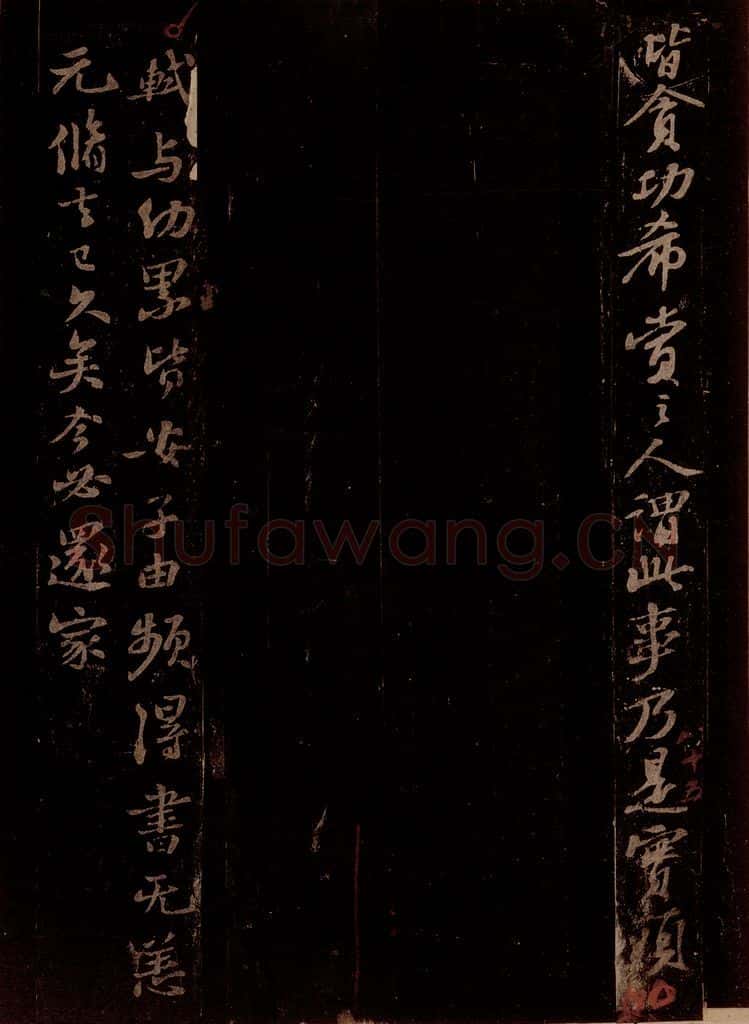 皆貪功希賞之人謂此事乃是實頭
軾与幼累皆安子由頻得書无恙
元脩去已久矣今必還家
八十五
Shufawang.CN